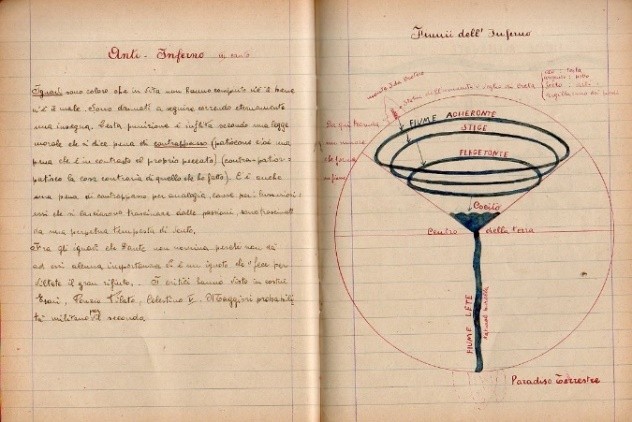 Anti-Inferno
Ignavi sono coloro che in vita non hanno compiuto né il bene
né il male. Sono dannati a seguire correndo eternamente
una insegna. Questa punizione è inflitta secondo una legge
morale che si dice pena di contrappasso (patiscono cioè una
pena che è in contrasto al proprio peccato) (contra-patior=
patisco la cosa contraria di quello che ho fatto). E è anche
una pena di contrappasso per analogia, come per i lussuriosi:
essi che si lasciarono trascinare dalle passioni, sono trascinati
da una perpetua tempesta di vento.
Fra gli ignavi che Dante non nomina perché non dà
ad essi alcuna importanza v'è un ignoto che "fece per
viltate il gran rifiuto". I critici hanno visto in costui
Esaù, Ponzio Pilato, Celestino V. Maggiori probabili
tà militano pel secondo.
Fiumi dell'Inferno
monte Ida Cretese
oro: testa
FIUME ACHERONTE
STIGE
FLEGETONTE
Cocito
Centro della terra
FIUME LETE
natural burella
Paradiso Terrestre